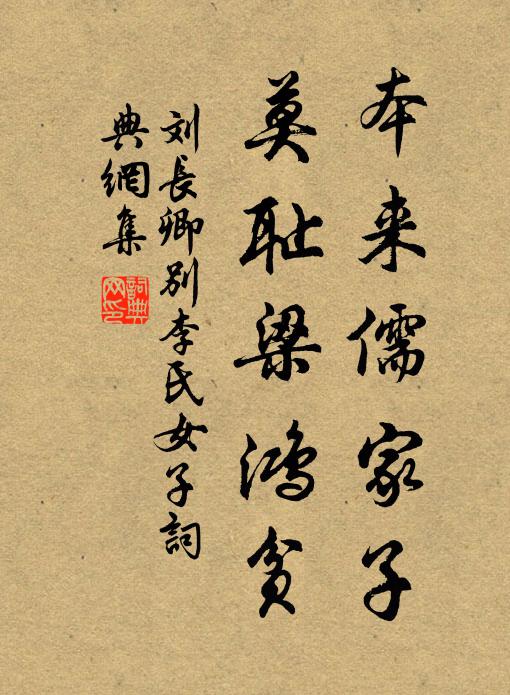 本来儒家子
莫耻梁鸿贫
刘長卿别李氏女子詞
典網集
詞典
网印